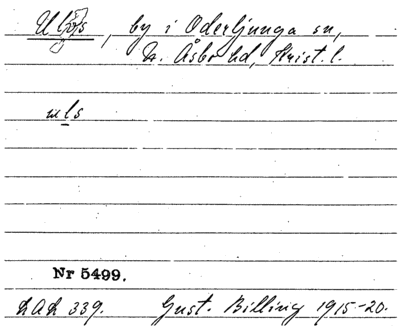 Ulfs, by i Oderljunga sn,
N. Åsbo hd, Krist. l.
uls
Nr 5499.
LAL 339. Gust. Billing 1915-20.